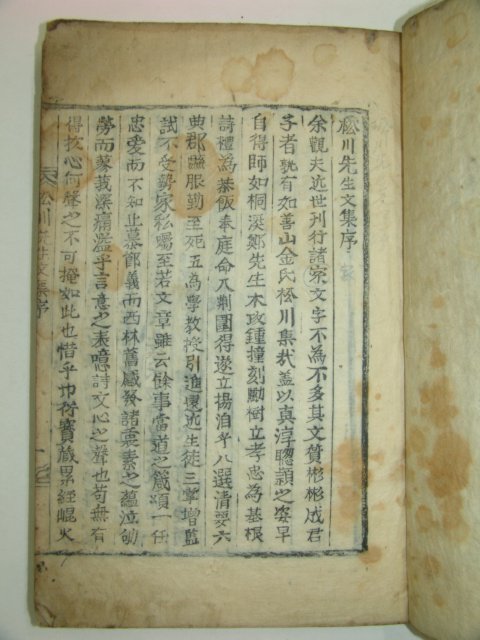 松川先生文集序
余觀夫近世刊行諸家文字不為不多其文質彬彬成君
子者孰有如善山金氏松川集哉盖以真淳聰穎之姿早
自得師如桐溪鄭先生木攻鍾撞刻勵樹立孝忠為基根
詩禮為茶飯奉庭命入荆圍得遂立揚洎乎八選清要六
典郡縣服勤至死五為學教授引進遠近生徒三掌增監
試不受勢家私囑至若文章雖云餘事當道之箴頌一任
忠愛而不知止慕節義而西林舊感發諸衷素之蘊泣劬
勞而蓼莪深痛溢乎言意之表噫詩文心之聲也苟無有
得於心何聲之不可掩如此也惜乎巾衍寶蔵累經崐火
松川先生文集序